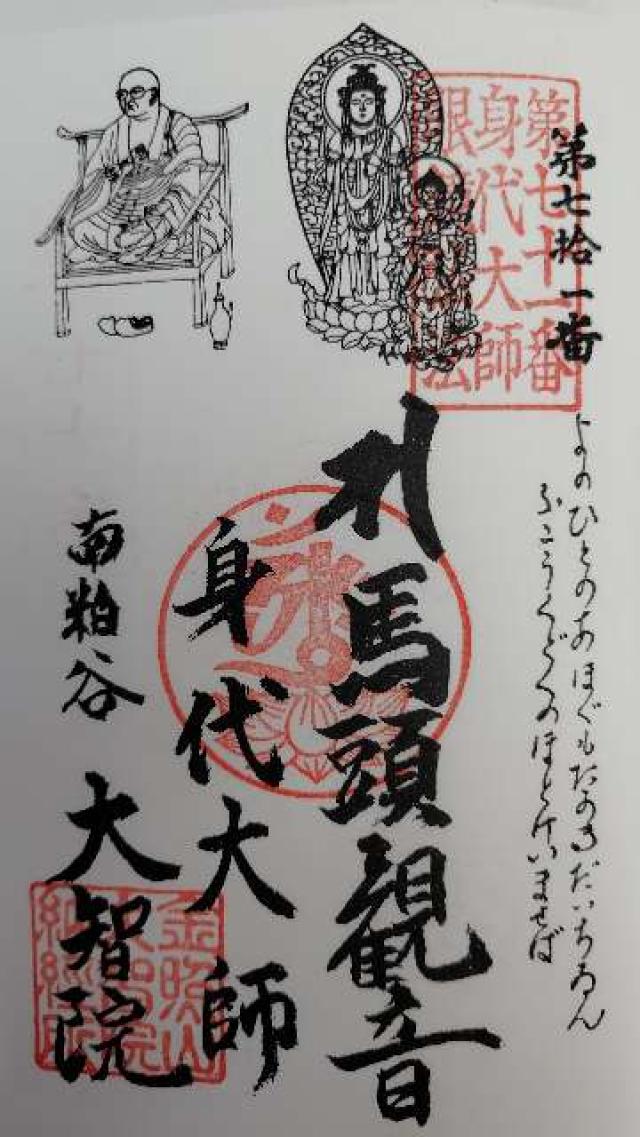 第七拾一番
第七十一番
身代大師
よのひとのあほぐもたかきだいちゐん
ふこうくどくのほとけいませば
札馬頭観音
身代大師
南粕谷
大智院
金照山
大智院
納経所